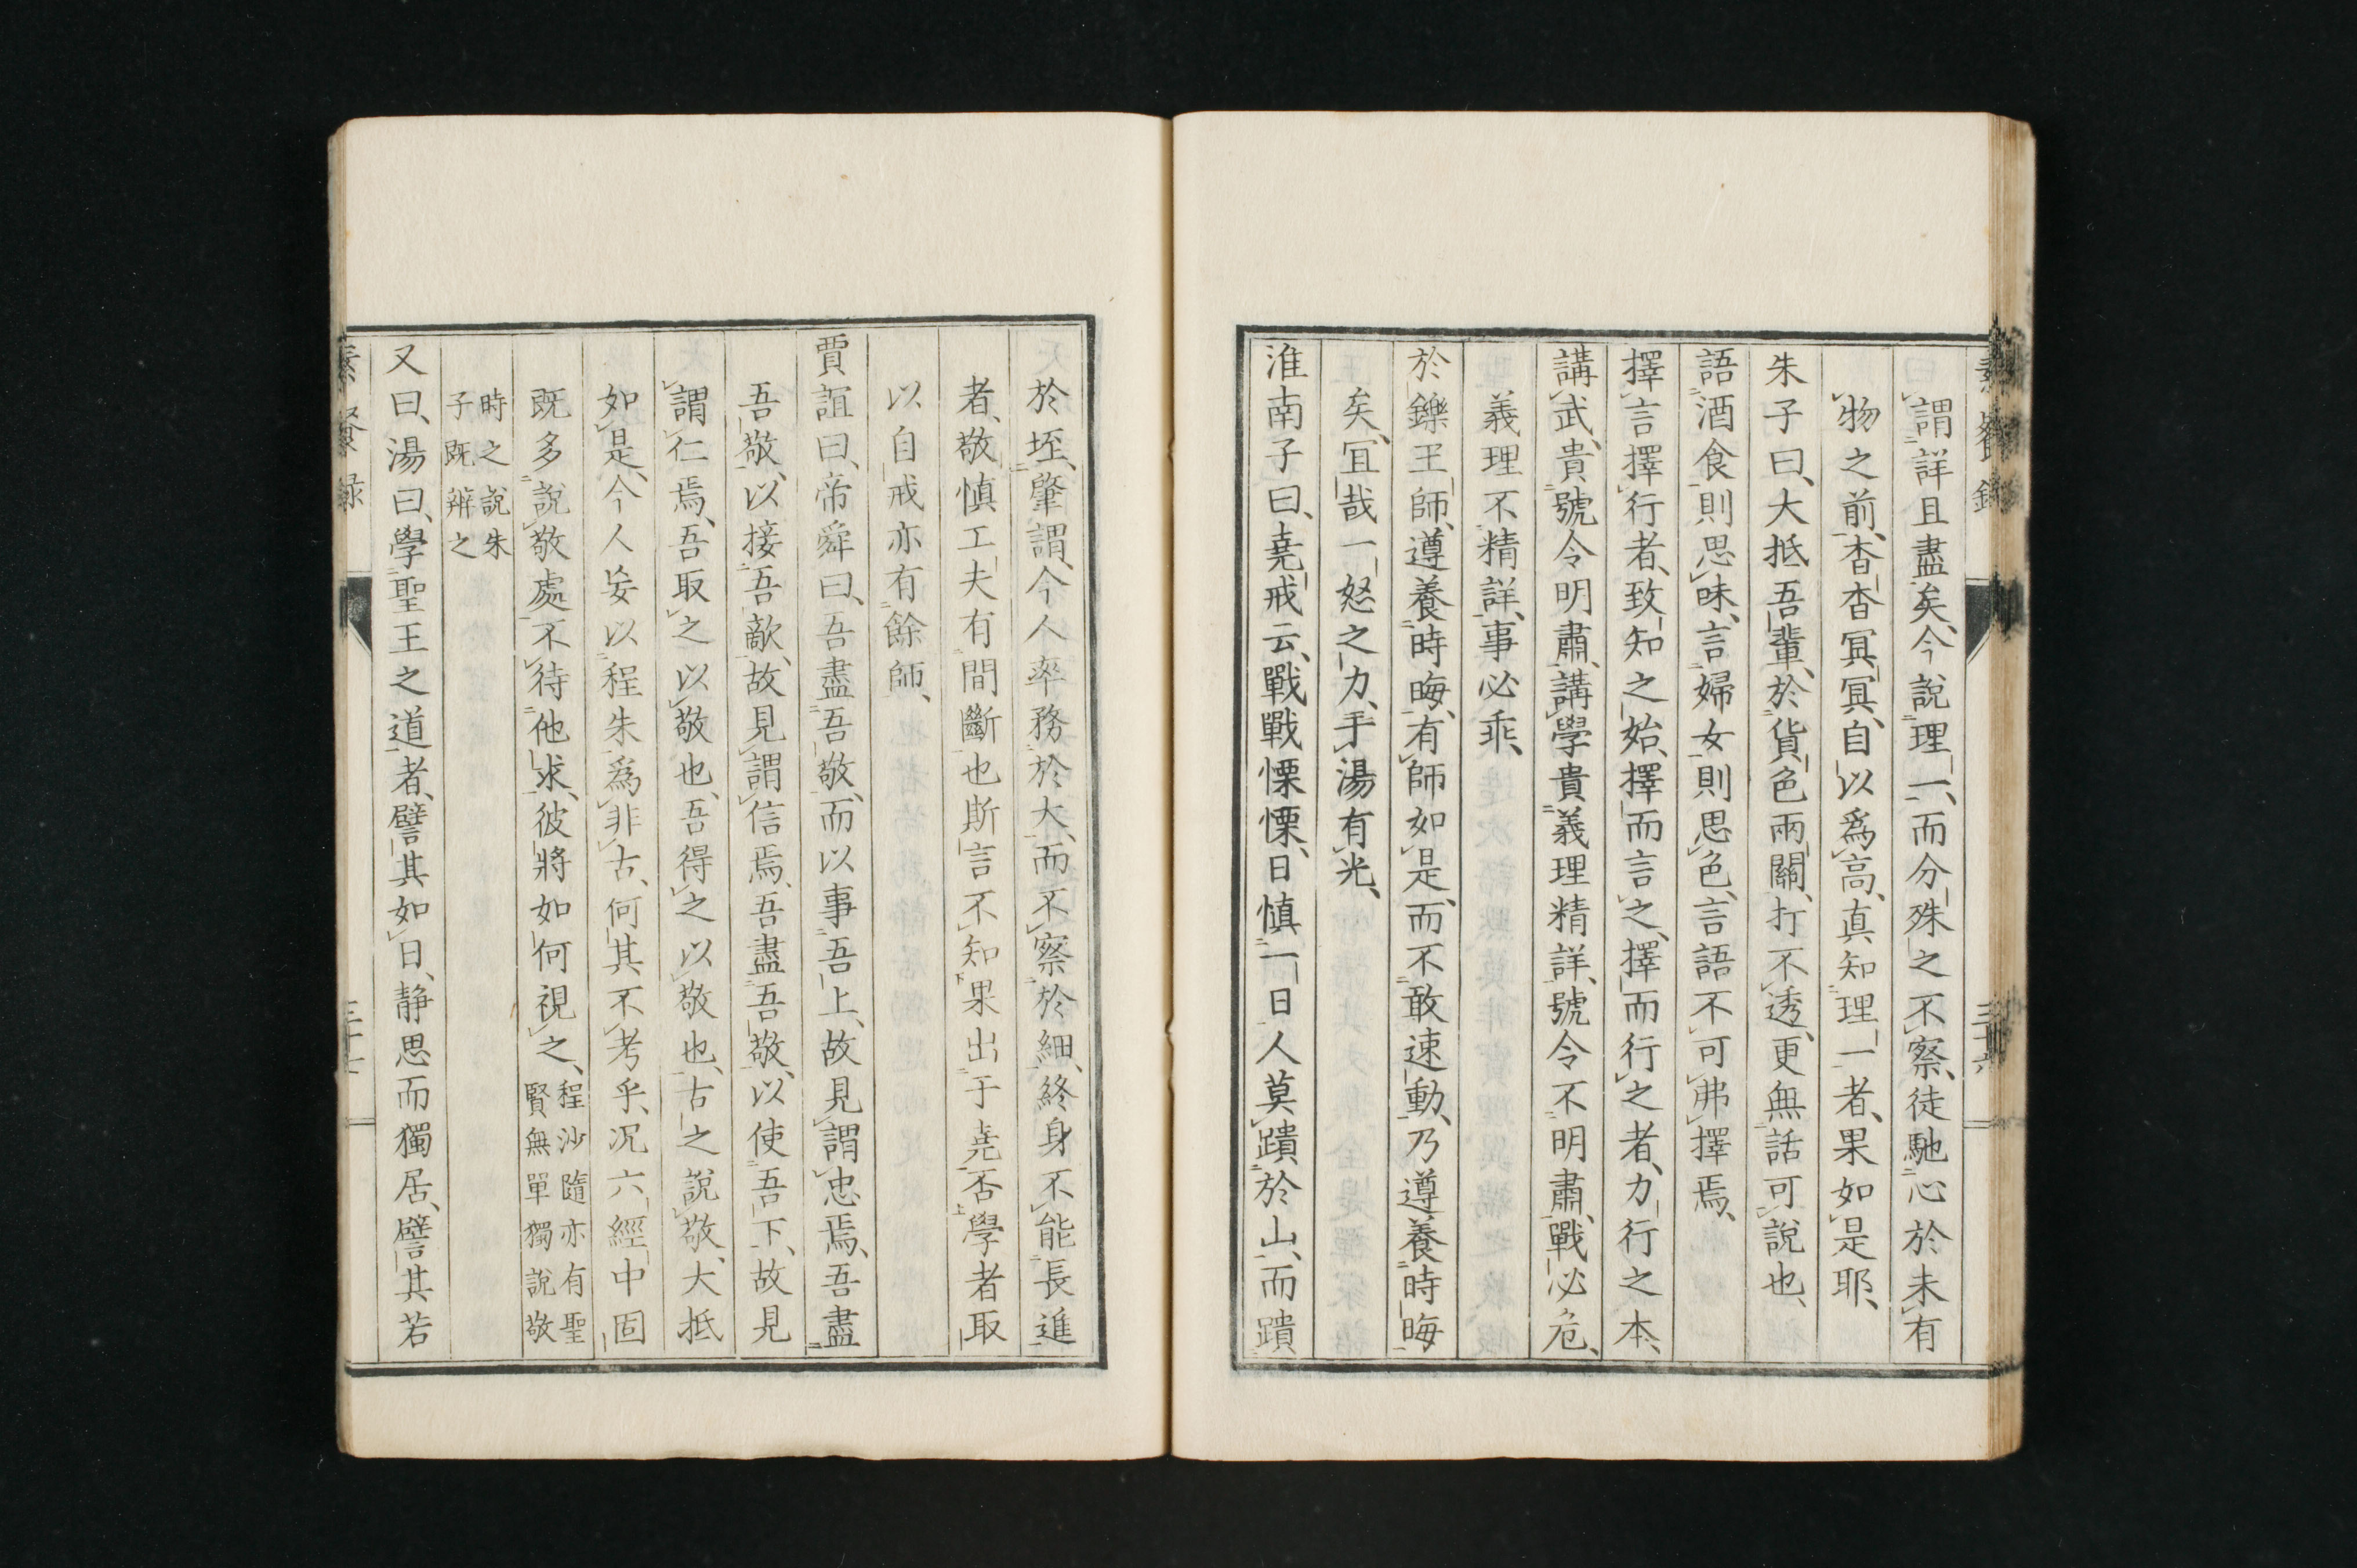 謂詳且盡矣、今說理一、而分殊之不察、徒馳心於未有
物之前、杳杳冥冥、自以爲高、真知理一者、果如是耶、
朱子曰、大抵吾輩、於貨色兩關、打不透、更無話可說也、
語酒食則思味、言婦女則思色、言語不可弗擇焉、
擇言擇行者、致知之始、擇而言之、擇而行之者、力行之本、
講武、貴號令明肅、講學貴義理精詳、號令不明肅、戰必危、
義理不精詳、事必乖、
於鑠王師、遵養時晦、有師如是、而不敢速動、乃遵養時晦
矣、宜哉一怒之力、于湯有光、
淮南子曰、堯戒云、戰戰慄慄、日慎一日、人莫蹪於山、而蹪
於垤、肇謂、今人率務於大、而不察於細、終身不能長進
者、敬慎工夫有間斷也斯言不知果出于堯否學者取
以自戒亦有餘師、
賈誼曰、帝舜曰、吾盡吾敬、而以事吾上、故見謂忠焉、吾盡
吾敬、以接吾敵、故見謂信焉、吾盡吾敬、以使吾下、故見
謂仁焉、吾取之以敬也、吾得之以敬也、古之說敬、大抵
如是、今人妄以程朱爲非古、何其不考乎、况六經中固
既多說敬處、不待他求、彼將如何視之、程沙隨亦有聖
賢無單獨說敬
時之說朱
子既辨之
又曰、湯曰、學聖王之道者、譬其如日、静思而獨居、譬其若